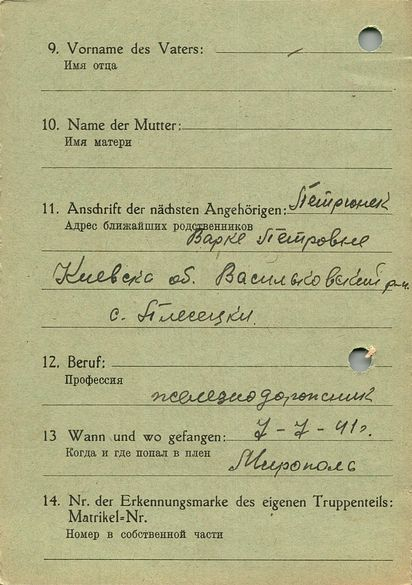 9. Vorname des Vaters:
Имя отца
10. Name der Mutter:
Имя матери
11. Anschrift der nächsten Angehörigen: Петрюнек
Адрес ближайших родственников
Варке Петровне
Киевска об. Васильковский р-н.
с. Плесецки.
12. Beruf:
Профессия
железнодорожник
13 Wann und wo gefangen: 7-7-41г.
Когда и где попал в плен
Мирополь
14. Nr. der Erkennungsmarke des eigenen Truppenteils:
Matrikel=Nr.
Номер в собственной части